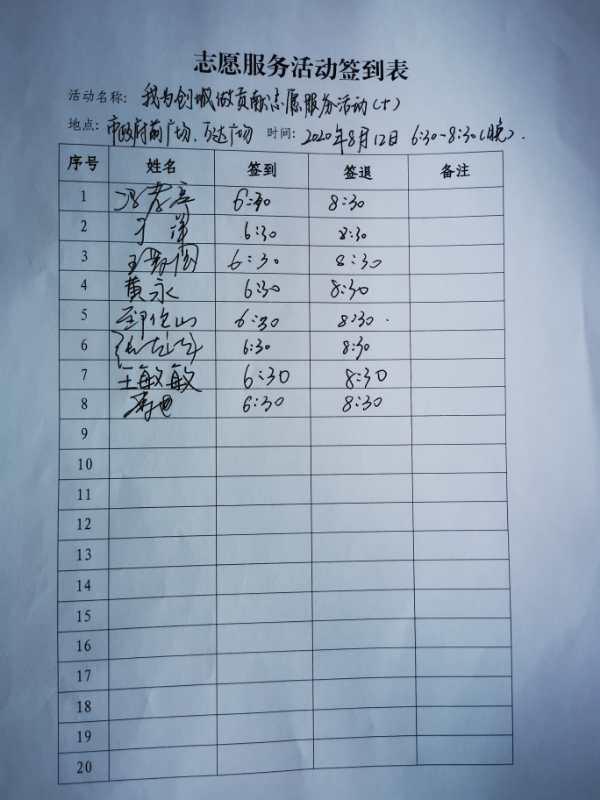 志愿服务活动签到表
活动名称: 我为创城做贡献志愿服务活动(十)
地点: 市政府前广场、万达广场 时间: 2020年8月12日 6:30-8:30(晚).
序号 姓名 签到 签退 备注
1 冯孝亭 6:30 8:30
2 于洋 6:30 8:30
3 6:30 8:30
4 黄永 6:30 8:30
5 6:30 8:30
6 6:30 8:30
7 王敏敏 6:30 8:30
8 6:30 8:30
9
10
11
12
13
14
15
16
17
18
19
20